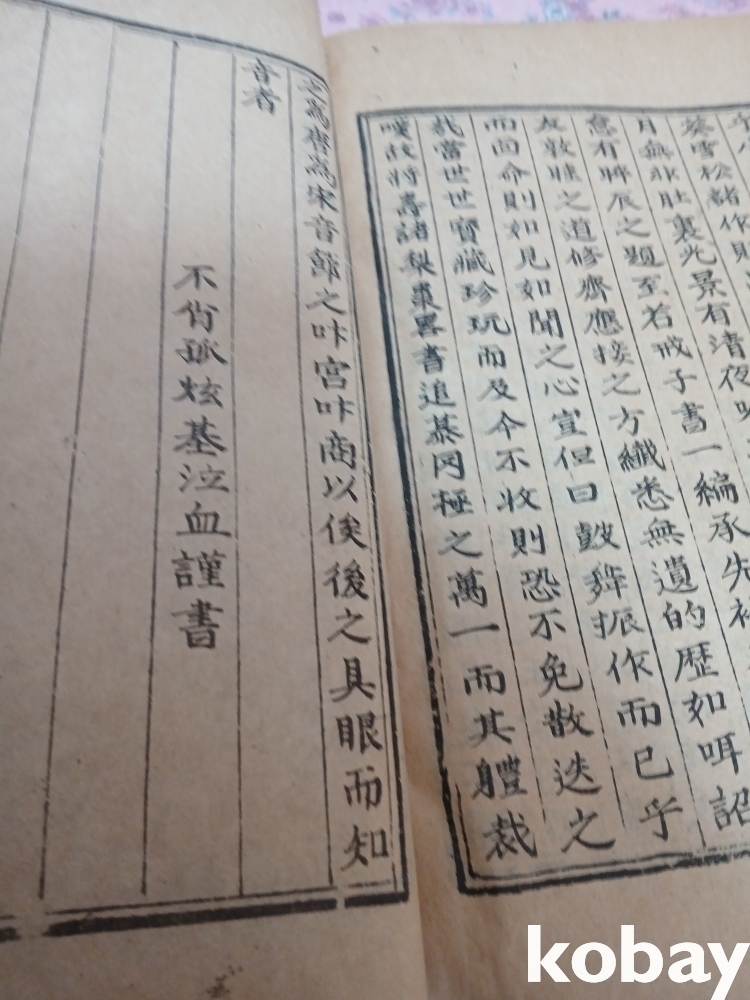 葵雪松諸作則
月無非肚裏光景有清夜
怠有辭辰之題至若戒子書一編承先
友敦睦之道修齊應接之方纖悉無遺的歷如咡詔
而面命則如見如聞之心豈但曰鼓舞振作而已乎
哉當世世寶藏珍玩而及今不收則恐不免散迭之
嘆故將壽諸梨棗畧書追慕罔極之萬一而其軆裁
之爲齊爲宋音節之宮商以俟後之具眼而知
音者
不肖孤炫基泣血謹書
kobay